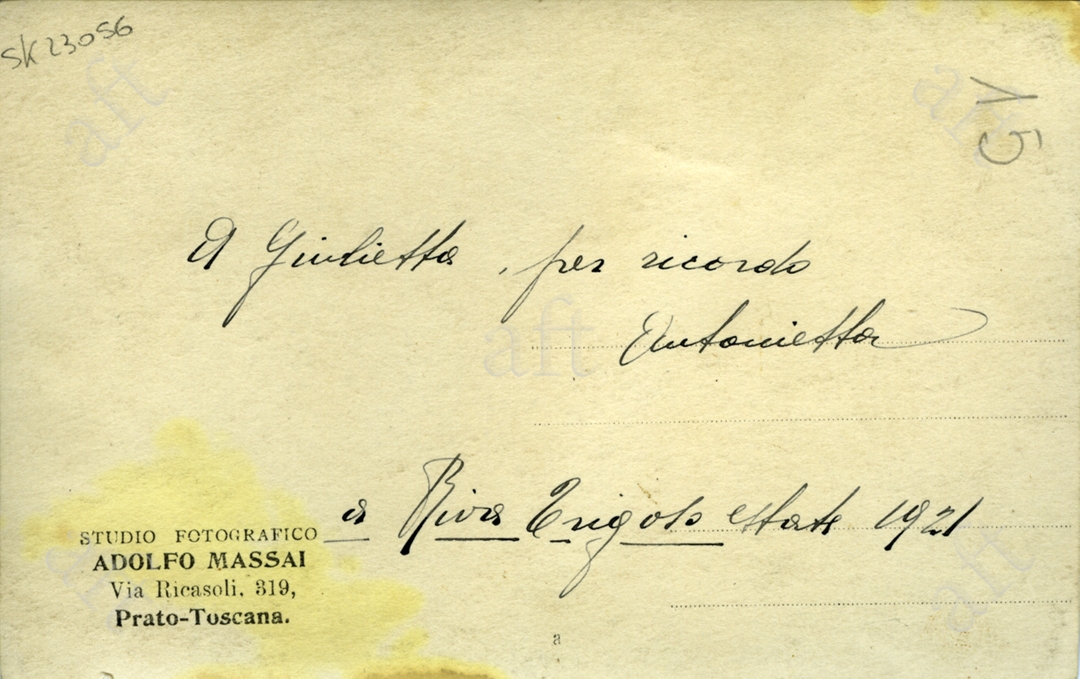 SK 23056
15
A Giulietta, per ricordo
Antonietta
a Riva Trigoso estate 1921
STUDIO FOTOGRAFICO
ADOLFO MASSAI
Via Ricasoli, 319,
Prato-Toscana.
a
aft
aft
aft
aft
aft